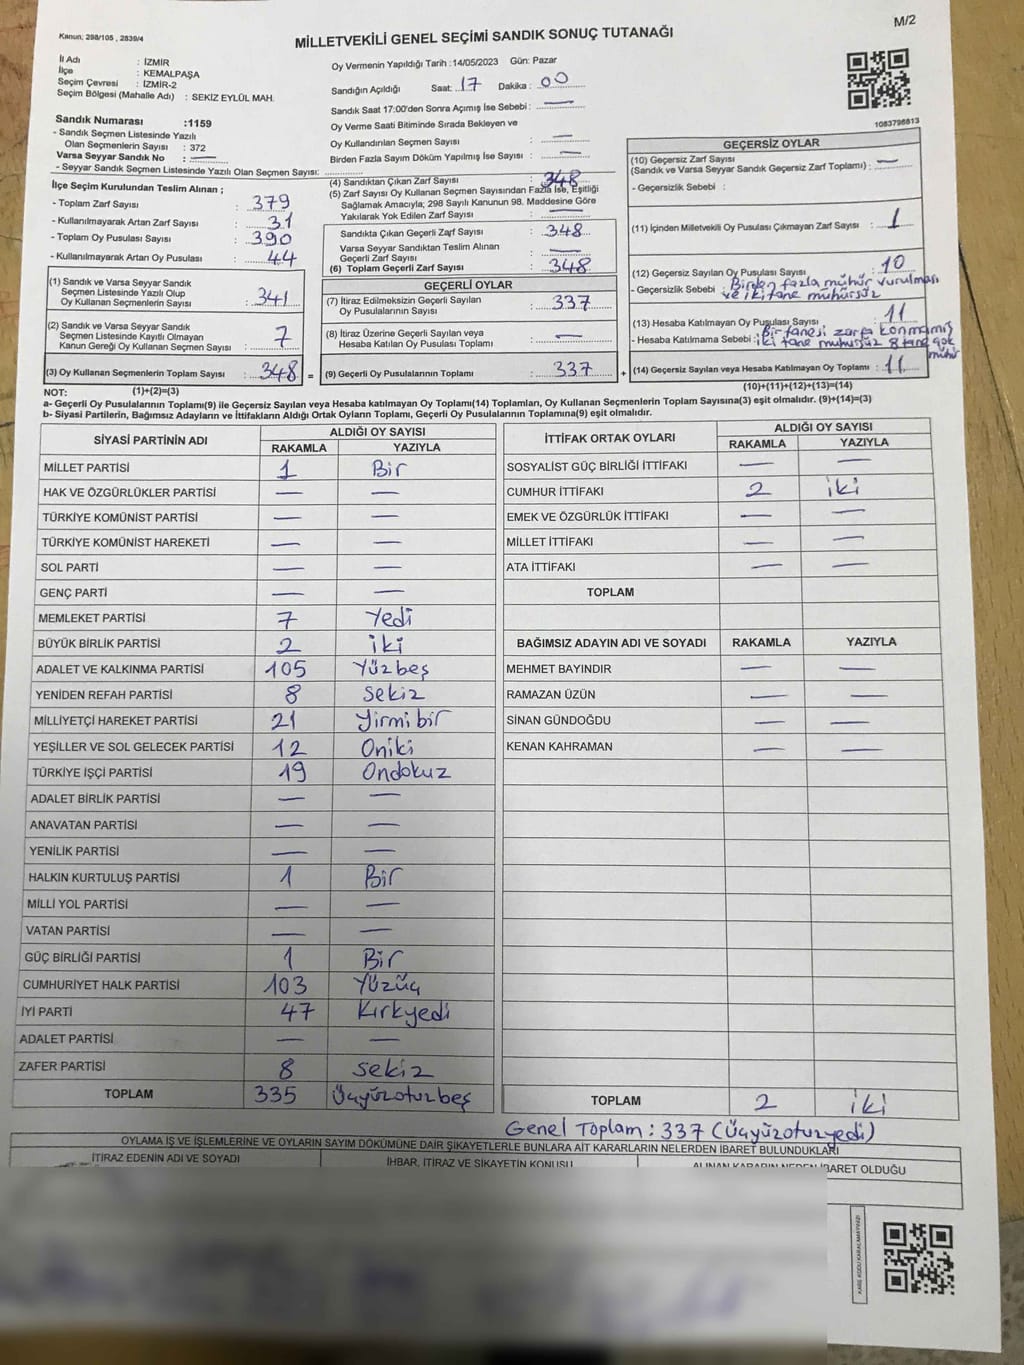 M/2
Kanun; 298/105 , 2839/4
MİLLETVEKİLİ GENEL SEÇİMİ SANDIK SONUÇ TUTANAĞI
İl Adı : İZMİR
İlçe : KEMALPAŞA
Seçim Çevresi : İZMİR-2
Seçim Bölgesi (Mahalle Adı) : SEKİZ EYLÜL MAH.
Sandık Numarası :1159
- Sandık Seçmen Listesinde Yazılı
Olan Seçmenlerin Sayısı : 372
Varsa Seyyar Sandık No : —
- Seyyar Sandık Seçmen Listesinde Yazılı Olan Seçmen Sayısı:
Oy Vermenin Yapıldığı Tarih :14/05/2023 Gün: Pazar
Sandığın Açıldığı Saat: 17 Dakika : 00
Sandık Saat 17:00'den Sonra Açımış İse Sebebi : —
Oy Verme Saati Bitiminde Sırada Bekleyen ve
Oy Kullandırılan Seçmen Sayısı : —
Birden Fazla Sayım Döküm Yapılmış İse Sayısı : —
1083798813
İlçe Seçim Kurulundan Teslim Alınan ;
- Toplam Zarf Sayısı : 379
- Kullanılmayarak Artan Zarf Sayısı : 31
- Toplam Oy Pusulası Sayısı : 390
- Kullanılmayarak Artan Oy Pusulası : 44
(1) Sandık ve Varsa Seyyar Sandık
Seçmen Listesinde Yazılı Olup
Oy Kullanan Seçmenlerin Sayısı : 341
(2) Sandık ve Varsa Seyyar Sandık
Seçmen Listesinde Kayıtlı Olmayan
Kanun Gereği Oy Kullanan Seçmen Sayısı : 7
(3) Oy Kullanan Seçmenlerin Toplam Sayısı : 348 =
(4) Sandıktan Çıkan Zarf Sayısı : 348
(5) Zarf Sayısı Oy Kullanan Seçmen Sayısından Fazla İse, Eşitliği
Sağlamak Amacıyla; 298 Sayılı Kanunun 98. Maddesine Göre
Yakılarak Yok Edilen Zarf Sayısı : —
Sandıkta Çıkan Geçerli Zarf Sayısı : 348
Varsa Seyyar Sandıktan Teslim Alınan
Geçerli Zarf Sayısı : —
(6) Toplam Geçerli Zarf Sayısı : 348
GEÇERLİ OYLAR
(7) İtiraz Edilmeksizin Geçerli Sayılan
Oy Pusulalarının Sayısı : 337
(8) İtiraz Üzerine Geçerli Sayılan veya
Hesaba Katılan Oy Pusulası Toplamı : —
(9) Geçerli Oy Pusulalarının Toplamı : 337 +
GEÇERSİZ OYLAR
(10) Geçersiz Zarf Sayısı
(Sandık ve Varsa Seyyar Sandık Geçersiz Zarf Toplamı) : —
- Geçersizlik Sebebi :
(11) İçinden Milletvekili Oy Pusulası Çıkmayan Zarf Sayısı : 1
(12) Geçersiz Sayılan Oy Pusulası Sayısı : 10
- Geçersizlik Sebebi : Birden fazla mühür vurulması
ve iki tane mühürsüz
(13) Hesaba Katılmayan Oy Pusulası Sayısı : 11
- Hesaba Katılmama Sebebi : Bir tanesi zarfa konmamış
iki tane mühürsüz 8 tane çok
mühür
(14) Geçersiz Sayılan veya Hesaba Katılmayan Oy Toplamı : 11
NOT: (1)+(2)=(3) (10)+(11)+(12)+(13)=(14)
a- Geçerli Oy Pusulalarının Toplamı(9) ile Geçersiz Sayılan veya Hesaba Katılmayan Oy Toplamı(14) Toplamları, Oy Kullanan Seçmenlerin Toplam Sayısına(3) eşit olmalıdır. (9)+(14)=(3)
b- Siyasi Partilerin, Bağımsız Adayların ve İttifakların Aldığı Ortak Oyların Toplamı, Geçerli Oy Pusulalarının Toplamına(9) eşit olmalıdır.
SİYASİ PARTİNİN ADI ALDIĞI OY SAYISI
RAKAMLA YAZIYLA
MİLLET PARTİSİ 1 Bir
HAK VE ÖZGÜRLÜKLER PARTİSİ — —
TÜRKİYE KOMÜNİST PARTİSİ — —
TÜRKİYE KOMÜNİST HAREKETİ — —
SOL PARTİ — —
GENÇ PARTİ — —
MEMLEKET PARTİSİ 7 Yedi
BÜYÜK BİRLİK PARTİSİ 2 iki
ADALET VE KALKINMA PARTİSİ 105 Yüzbeş
YENİDEN REFAH PARTİSİ 8 sekiz
MİLLİYETÇİ HAREKET PARTİSİ 21 Yirmibir
YEŞİLLER VE SOL GELECEK PARTİSİ 12 Oniki
TÜRKİYE İŞÇİ PARTİSİ 19 Ondokuz
ADALET BİRLİK PARTİSİ — —
ANAVATAN PARTİSİ — —
YENİLİK PARTİSİ — —
HALKIN KURTULUŞ PARTİSİ 1 Bir
MİLLİ YOL PARTİSİ — —
VATAN PARTİSİ — —
GÜÇ BİRLİĞİ PARTİSİ 1 Bir
CUMHURİYET HALK PARTİSİ 103 Yüzüç
İYİ PARTİ 47 Kırkyedi
ADALET PARTİSİ — —
ZAFER PARTİSİ 8 sekiz
TOPLAM 335 Üçyüzotuzbeş
İTTİFAK ORTAK OYLARI ALDIĞI OY SAYISI
RAKAMLA YAZIYLA
SOSYALİST GÜÇ BİRLİĞİ İTTİFAKI — —
CUMHUR İTTİFAKI 2 iki
EMEK VE ÖZGÜRLÜK İTTİFAKI — —
MİLLET İTTİFAKI — —
ATA İTTİFAKI — —
TOPLAM
BAĞIMSIZ ADAYIN ADI VE SOYADI RAKAMLA YAZIYLA
MEHMET BAYINDIR — —
RAMAZAN ÜZÜN — —
SİNAN GÜNDOĞDU — —
KENAN KAHRAMAN — —
TOPLAM 2 iki
Genel Toplam : 337 (Üçyüzotuzyedi)
OYLAMA İŞ VE İŞLEMLERİNE VE OYLARIN SAYIM DÖKÜMÜNE DAİR ŞİKAYETLERLE BUNLARA AİT KARARLARIN NELERDEN İBARET BULUNDUKLARI
İTİRAZ EDENİN ADI VE SOYADI
İHBAR, İTİRAZ VE ŞİKAYETİN KONUSU
ALINAN KARARIN NEDEN İBARET OLDUĞU